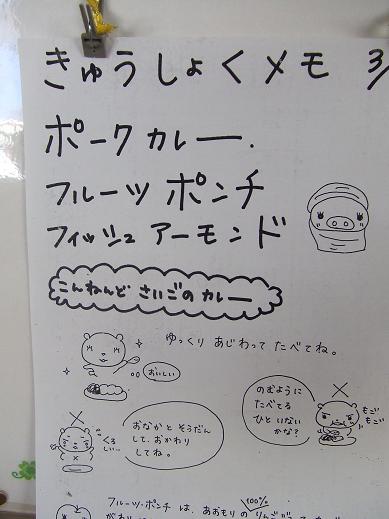 きゅうしょくメモ 3/
ポークカレー.
フルーツポンチ
フィッシュアーモンド
こんねんど さいごの カレー
ゆっくり あじわって たべてね。
おいしい
のむように
たべてる
ひと いない
かな?
もご
もご
くる
しい…
おなかと そうだん
して、おかわり
してね。
100%
フルーツ・ポンチ は、あおもりの りんご